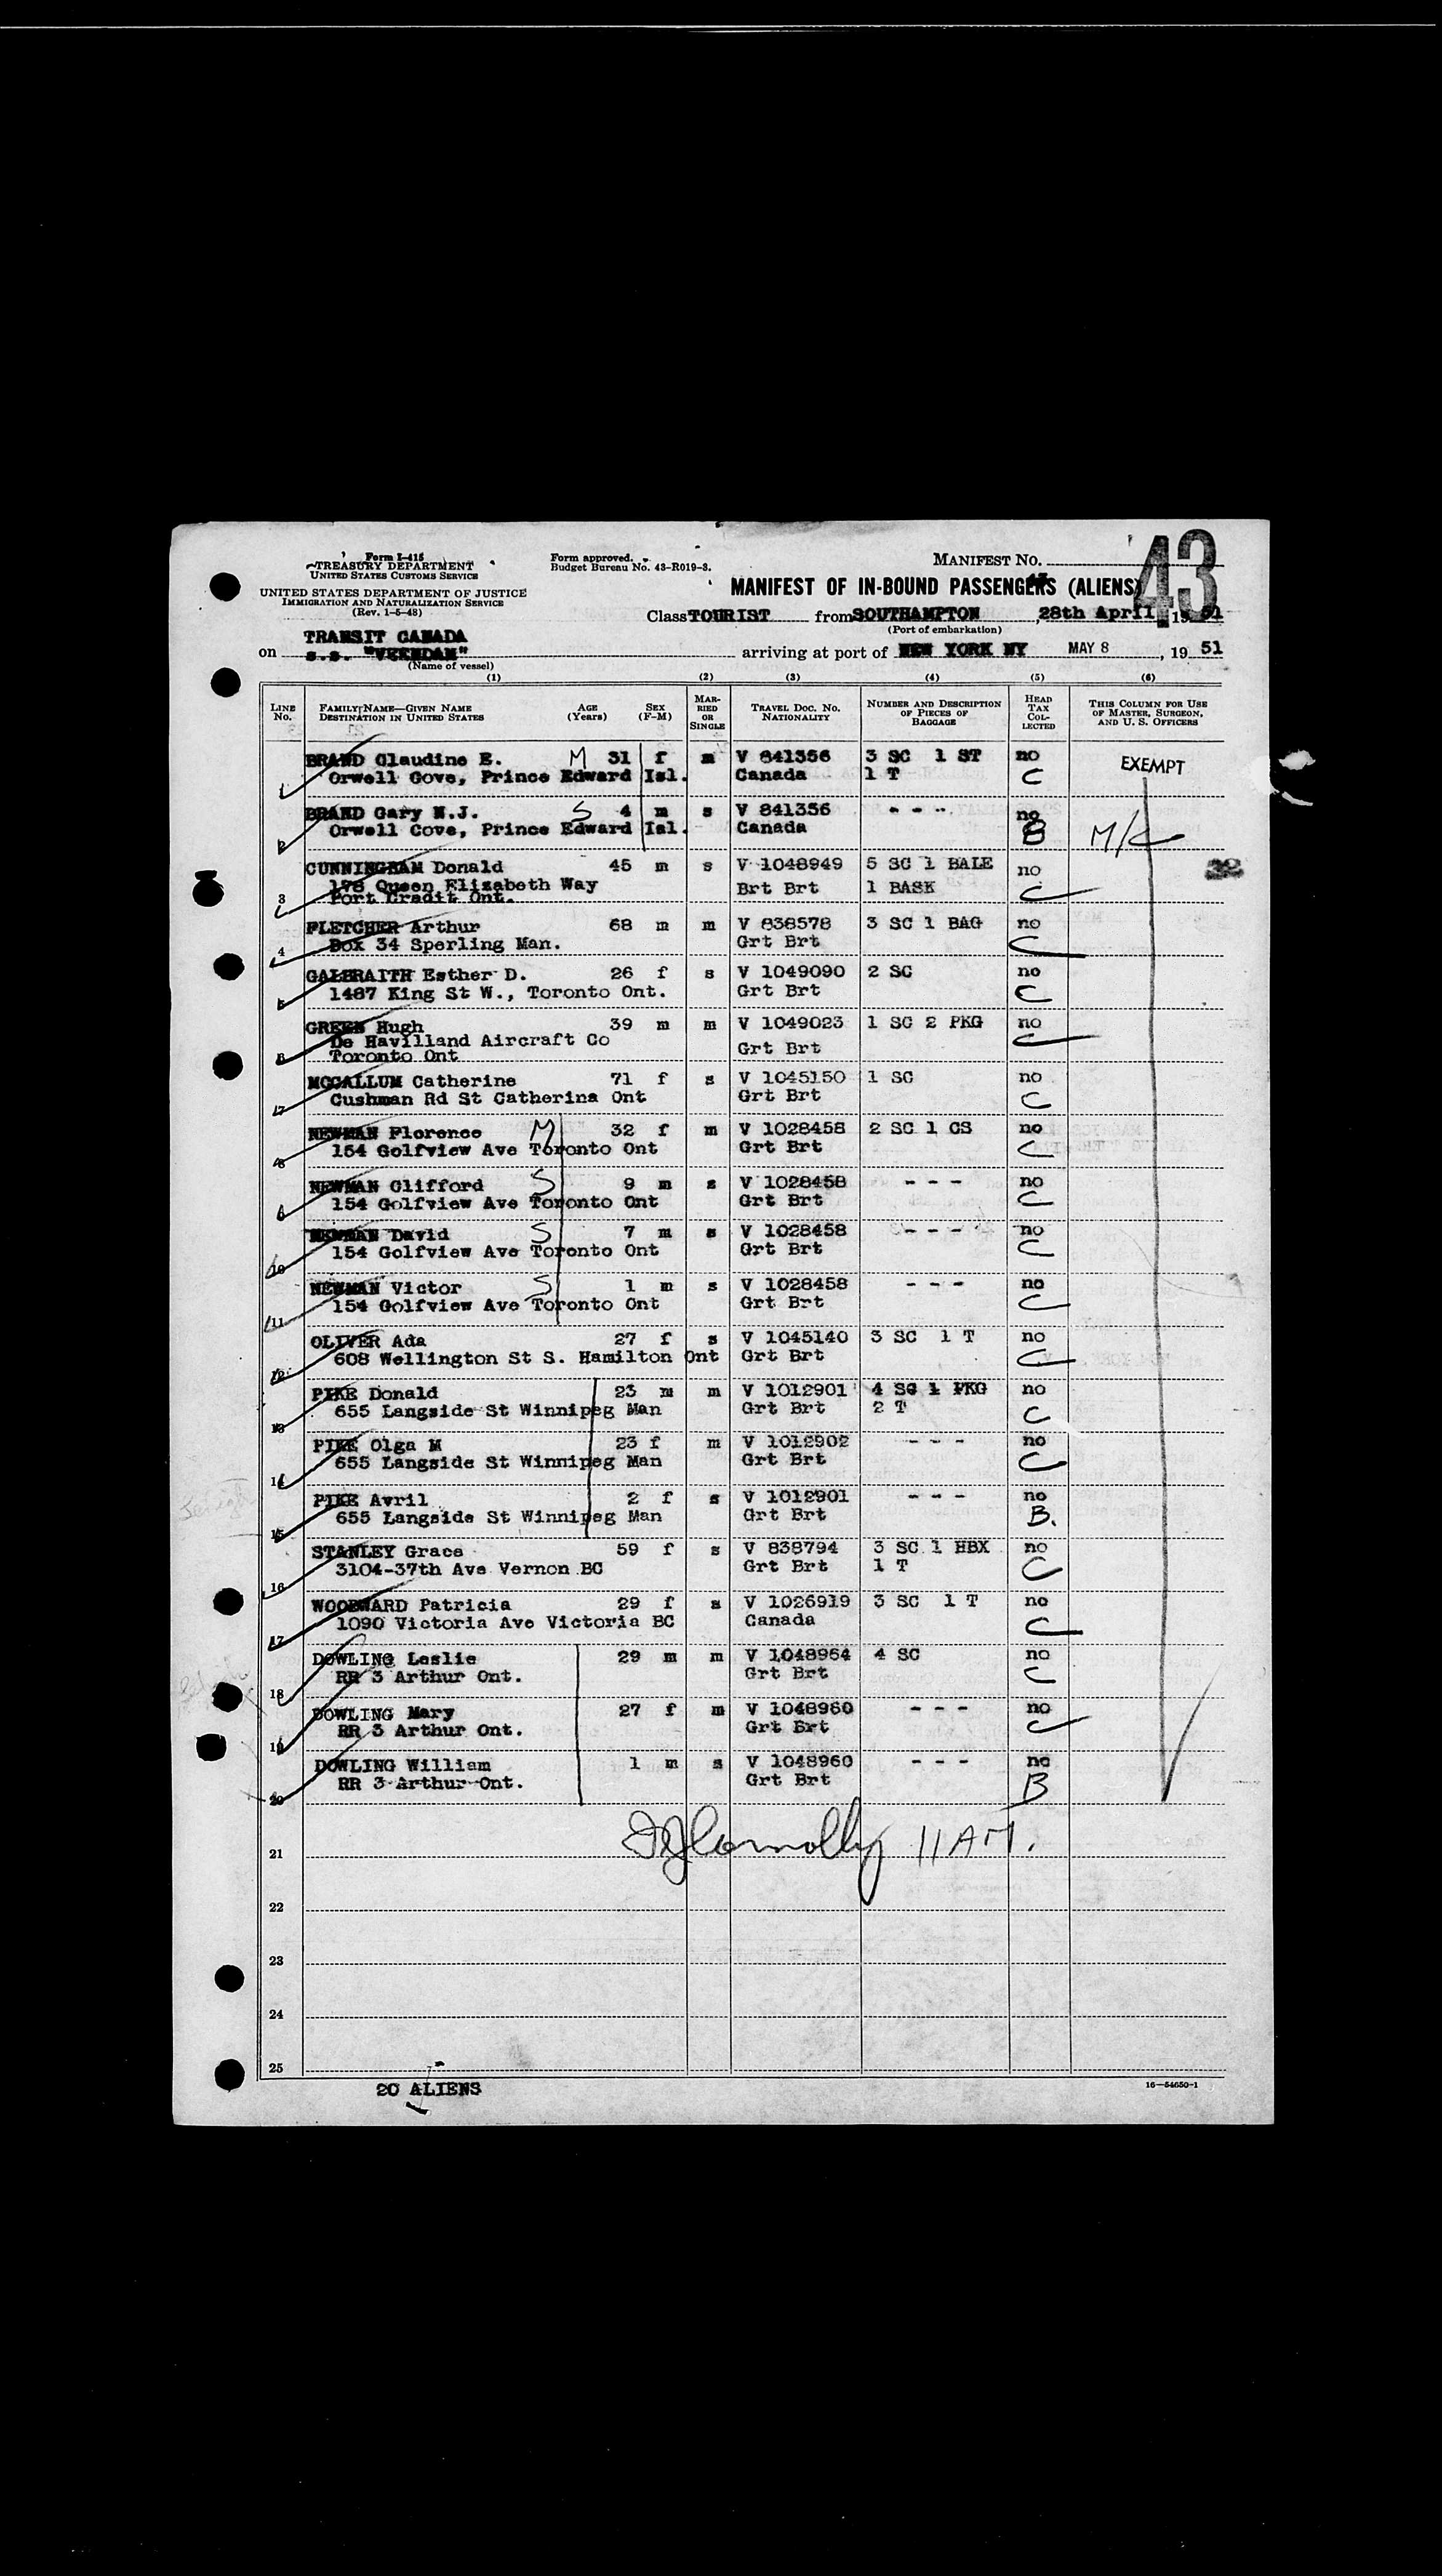 Form I-415
TREASURY DEPARTMENT
UNITED STATES CUSTOMS SERVICE
UNITED STATES DEPARTMENT OF JUSTICE
IMMIGRATION AND NATURALIZATION SERVICE
(Rev. 1-5-48)
Form approved.
Budget Bureau No. 43-R019-3.
MANIFEST NO.
43
MANIFEST OF IN-BOUND PASSENGERS (ALIENS)
Class TOURIST from SOUTHAMPTON, 28th April, 19 51
(Port of embarkation)
TRANSIT CANADA
on s.s. "VEENDAM" arriving at port of NEW YORK NY MAY 8, 19 51
(Name of vessel)
(1) (2) (3) (4) (5) (6)
LINE No. FAMILY NAME—GIVEN NAME DESTINATION IN UNITED STATES AGE (Years) SEX (F-M) MARRIED OR SINGLE TRAVEL DOC. NO. NATIONALITY NUMBER AND DESCRIPTION OF PIECES OF BAGGAGE HEAD TAX COLLECTED THIS COLUMN FOR USE OF MASTER, SURGEON, AND U. S. OFFICERS
BRAND Claudine E. M 31 f m V 841356 3 SC 1 ST no EXEMPT
1 Orwell Cove, Prince Edward Isl. Canada 1 T C
BRAND Gary N.J. S 4 m s V 841356 - - - no
2 Orwell Cove, Prince Edward Isl. Canada B M/C
CUNNINGHAM Donald 45 m s V 1048949 5 SC 1 BALE no 32
178 Queen Elizabeth Way Brt Brt 1 BASK C
3 Port Credit Ont.
FLETCHER Arthur 68 m m V 838578 3 SC 1 BAG no
4 Box 34 Sperling Man. Grt Brt C
GALBRAITH Esther D. 26 f s V 1049090 2 SC no
5 1487 King St W., Toronto Ont. Grt Brt C
GREEN Hugh 39 m m V 1049023 1 SC 2 PKG no
De Havilland Aircraft Co Grt Brt C
6 Toronto Ont
MCCALLUM Catherine 71 f s V 1045150 1 SC no
7 Cushman Rd St Catherina Ont Grt Brt C
NEWMAN Florence M 32 f m V 1028458 2 SC 1 CS no
8 154 Golfview Ave Toronto Ont Grt Brt C
NEWMAN Clifford S 9 m s V 1028458 - - - no
9 154 Golfview Ave Toronto Ont Grt Brt C
NEWMAN David S 7 m s V 1028458 - - - no
10 154 Golfview Ave Toronto Ont Grt Brt C
NEWMAN Victor S 1 m s V 1028458 - - - no
11 154 Golfview Ave Toronto Ont Grt Brt C
OLIVER Ada 27 f s V 1045140 3 SC 1 T no
12 608 Wellington St S. Hamilton Ont Grt Brt C
PIKE Donald 23 m m V 1012901 4 SC 1 PKG no
13 655 Langside St Winnipeg Man Grt Brt 2 T C
PIKE Olga M 23 f m V 1012902 - - - no
14 655 Langside St Winnipeg Man Grt Brt C
PIKE Avril 2 f s V 1012901 - - - no
15 655 Langside St Winnipeg Man Grt Brt B.
STANLEY Grace 59 f s V 838794 3 SC 1 HBX no
16 3104-37th Ave Vernon BC Grt Brt 1 T C
WOODWARD Patricia 29 f s V 1026919 3 SC 1 T no
17 1090 Victoria Ave Victoria BC Canada C
DOWLING Leslie 29 m m V 1048964 4 SC no
18 RR 3 Arthur Ont. Grt Brt C
DOWLING Mary 27 f m V 1048960 - - - no
19 RR 3 Arthur Ont. Grt Brt C
DOWLING William 1 m s V 1048960 - - - no
20 RR 3 Arthur Ont. Grt Brt B
21 Connolly 11 AM.
22
23
24
25
20 ALIENS
16—54650-1